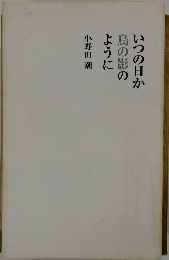 いつの日か
鳥の影の
ように
小野田潮